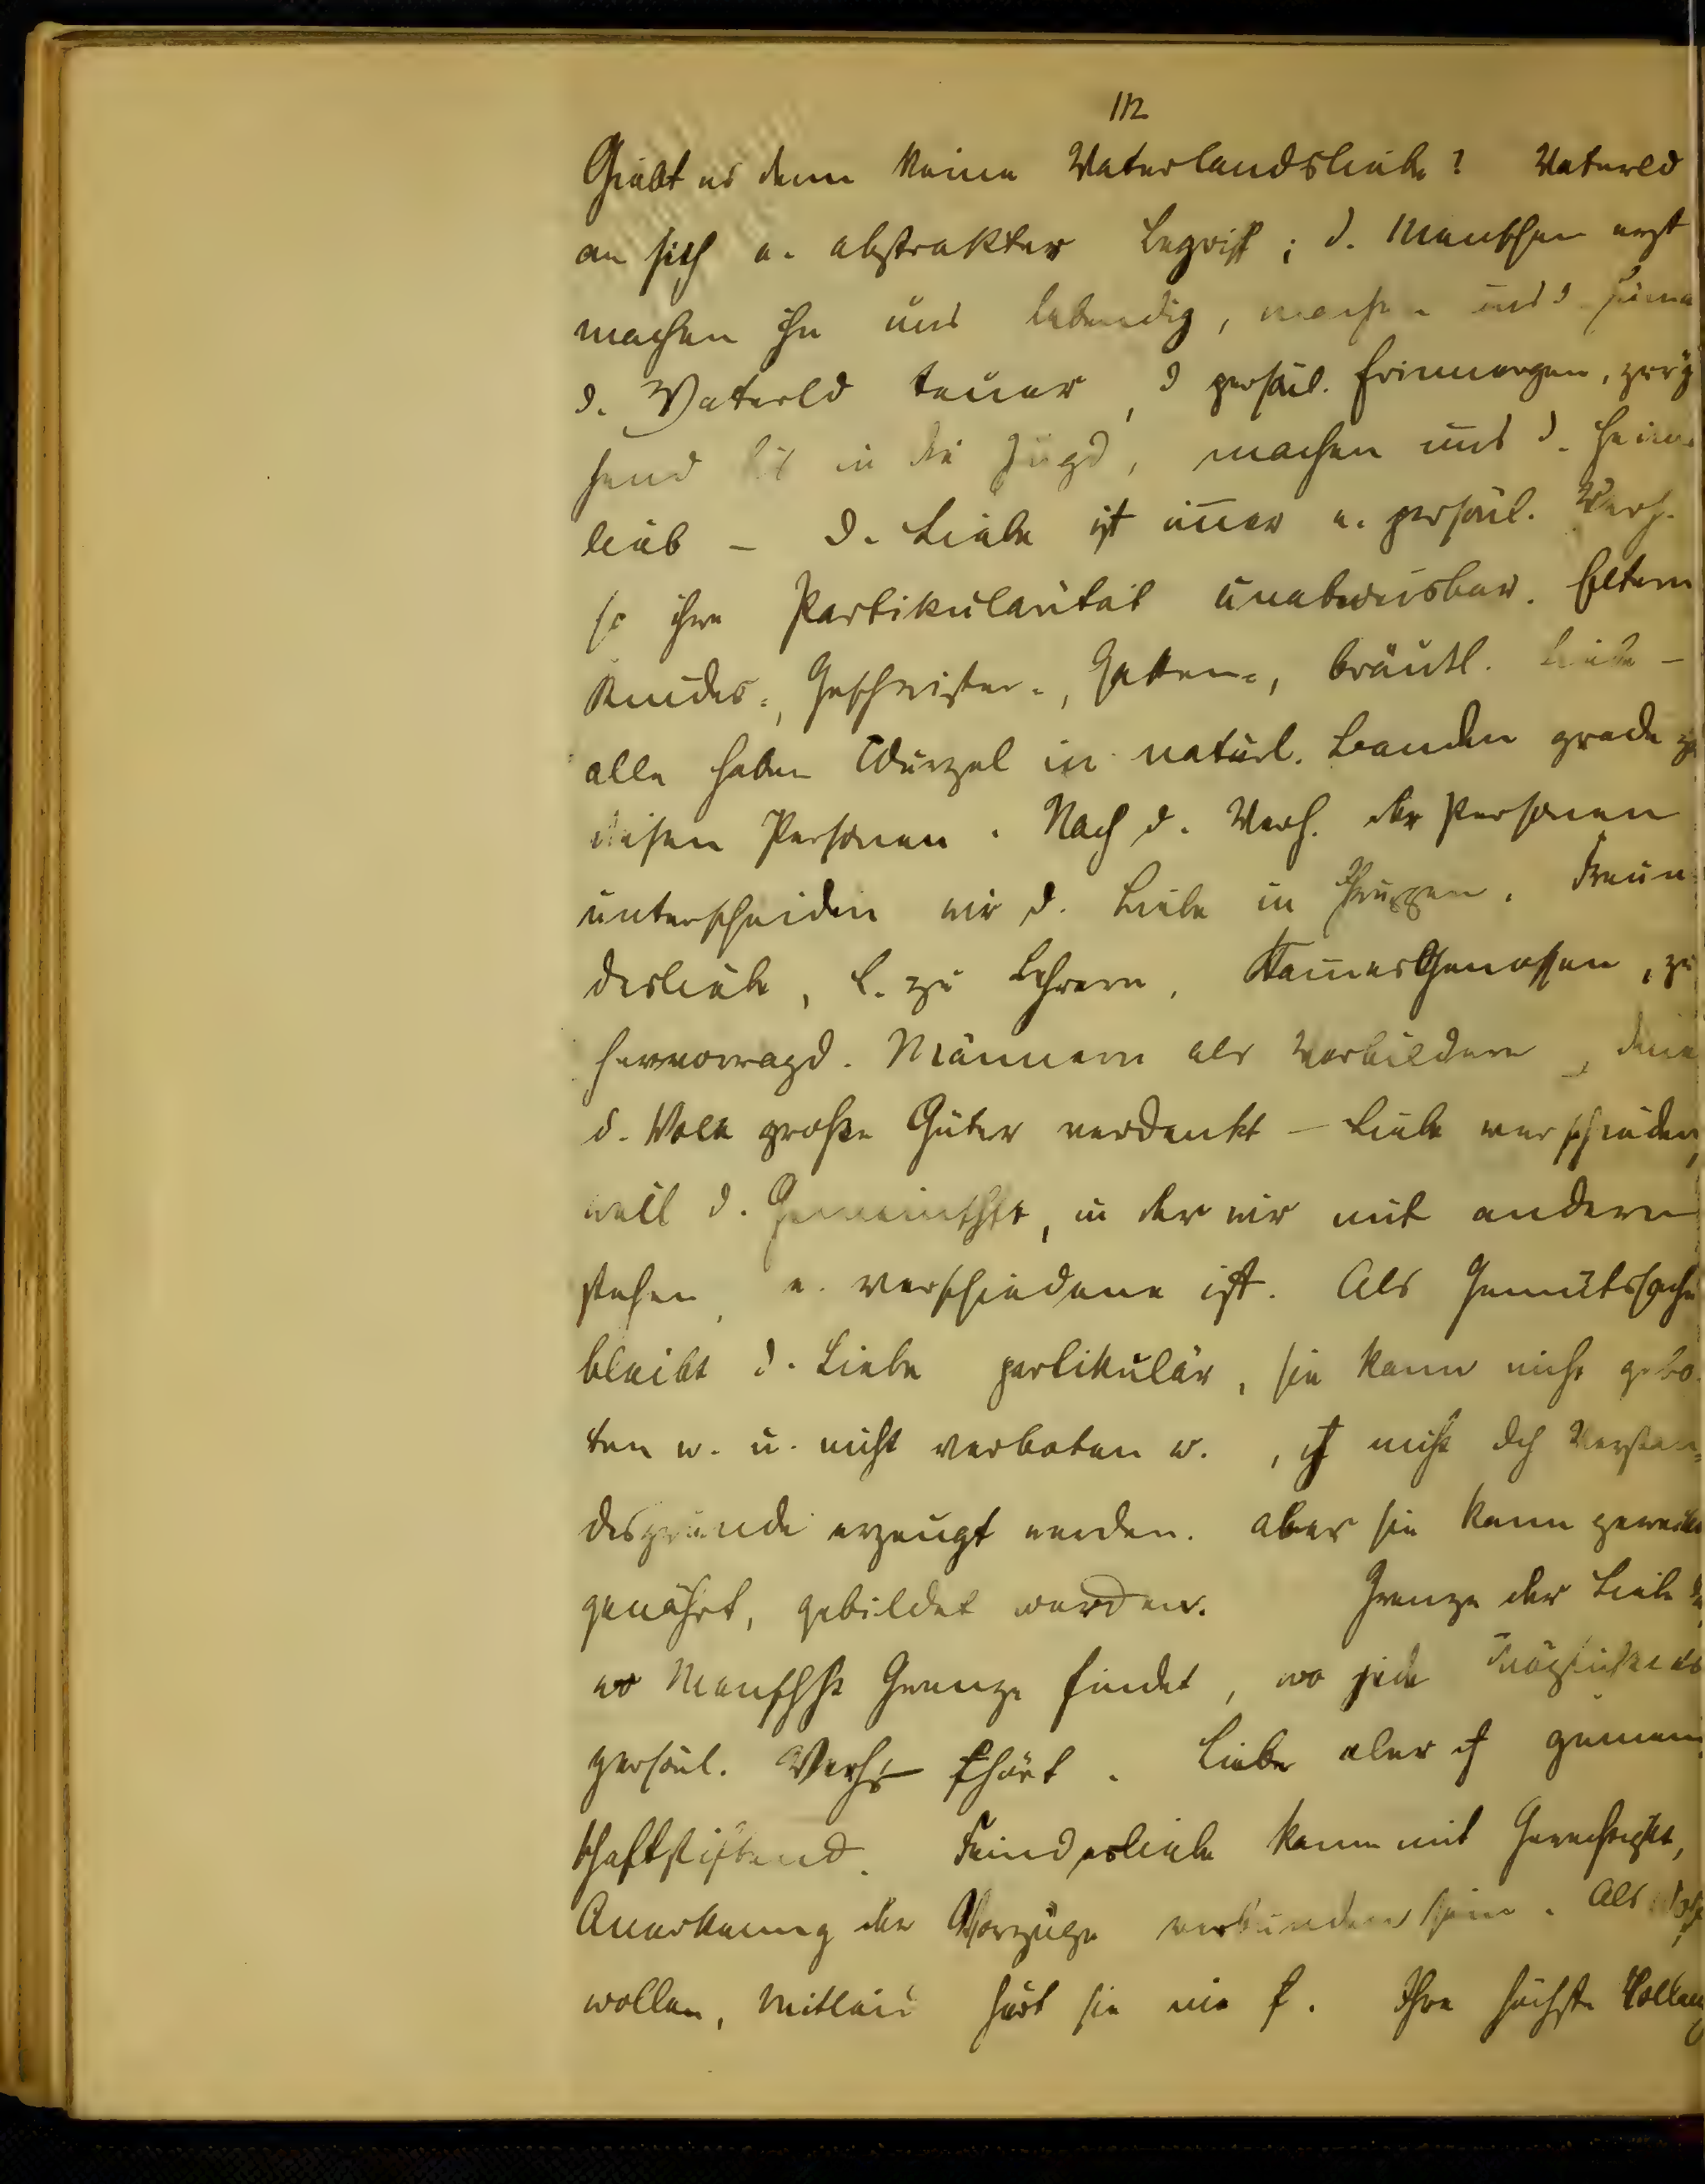 112
Giebt es denn keine Vaterlandsliebe? Vaterld
an sich e. abstrakter Begriff; d. Menschen erst
machen ihn uns lebendig, machen uns d.
d. Vaterld teuer, d persönl. Erinnerungen,
hend bis in die Jugd, machen uns d. Heim
lieb – D. Liebe ist im̄er e. persönl. Verh.
so ihre Partikularität unabweisbar. Eltern
Kindes-, Geschwister-, Gatten-, bräutl. Liebe –
alle haben Wurzel in natürl. Banden grade
diesen Personen. Nach d. Verh. der Personen
unterscheiden wir d. Liebe in Gruppen. Freun
desliebe, L. zu Lehrern, Stam̄esgenossen, zu
hervorragd. Männern als Vorbildern, denen
d. Volk große Güter verdankt – Liebe verschieden,
weil d. Gemeinschft, in der wir mit andern
stehen, e. verschiedene ist. Als Gemütssache
bleibt d. Liebe partikulär, sie kann nicht gebo
ten w. u. nicht verboten w., ist nicht dch Verstan-
desgründe erzeugt werden. aber sie kann geweckt
genährt, gebildet werden. Grenze der Liebe
wo Menschht Grenze findet, wo jede Möglichkeit
persönl. Verh. fhört. Liebe aber ist gemein
schaftstiftend. Feindesliebe kann mit Gerechtigkt,
Anerkennung der Vorzüge verbunden sein. Als Wohl
wollen, Mitleid hört sie nie f. Ihre höchste